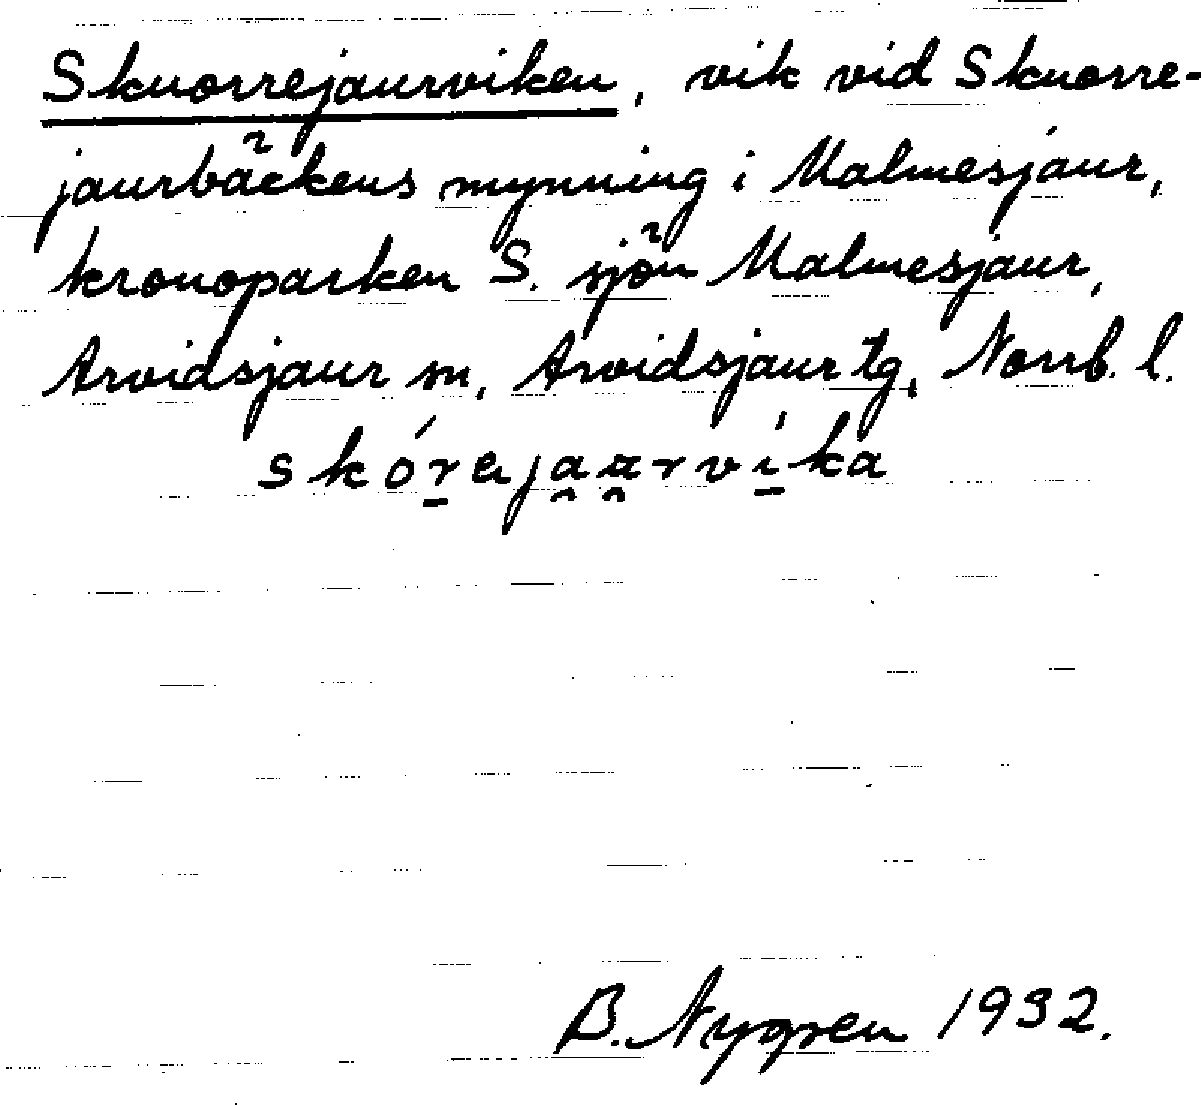 Skuorrejaurviken, vik vid Skuorre-
jaurbäckens mynning i Malmesjaur,
kronoparken S. sjön Malmesjaur,
Arvidsjaur sn, Arvidsjaur tg, Norrb. l.
B. Nygren 1932.